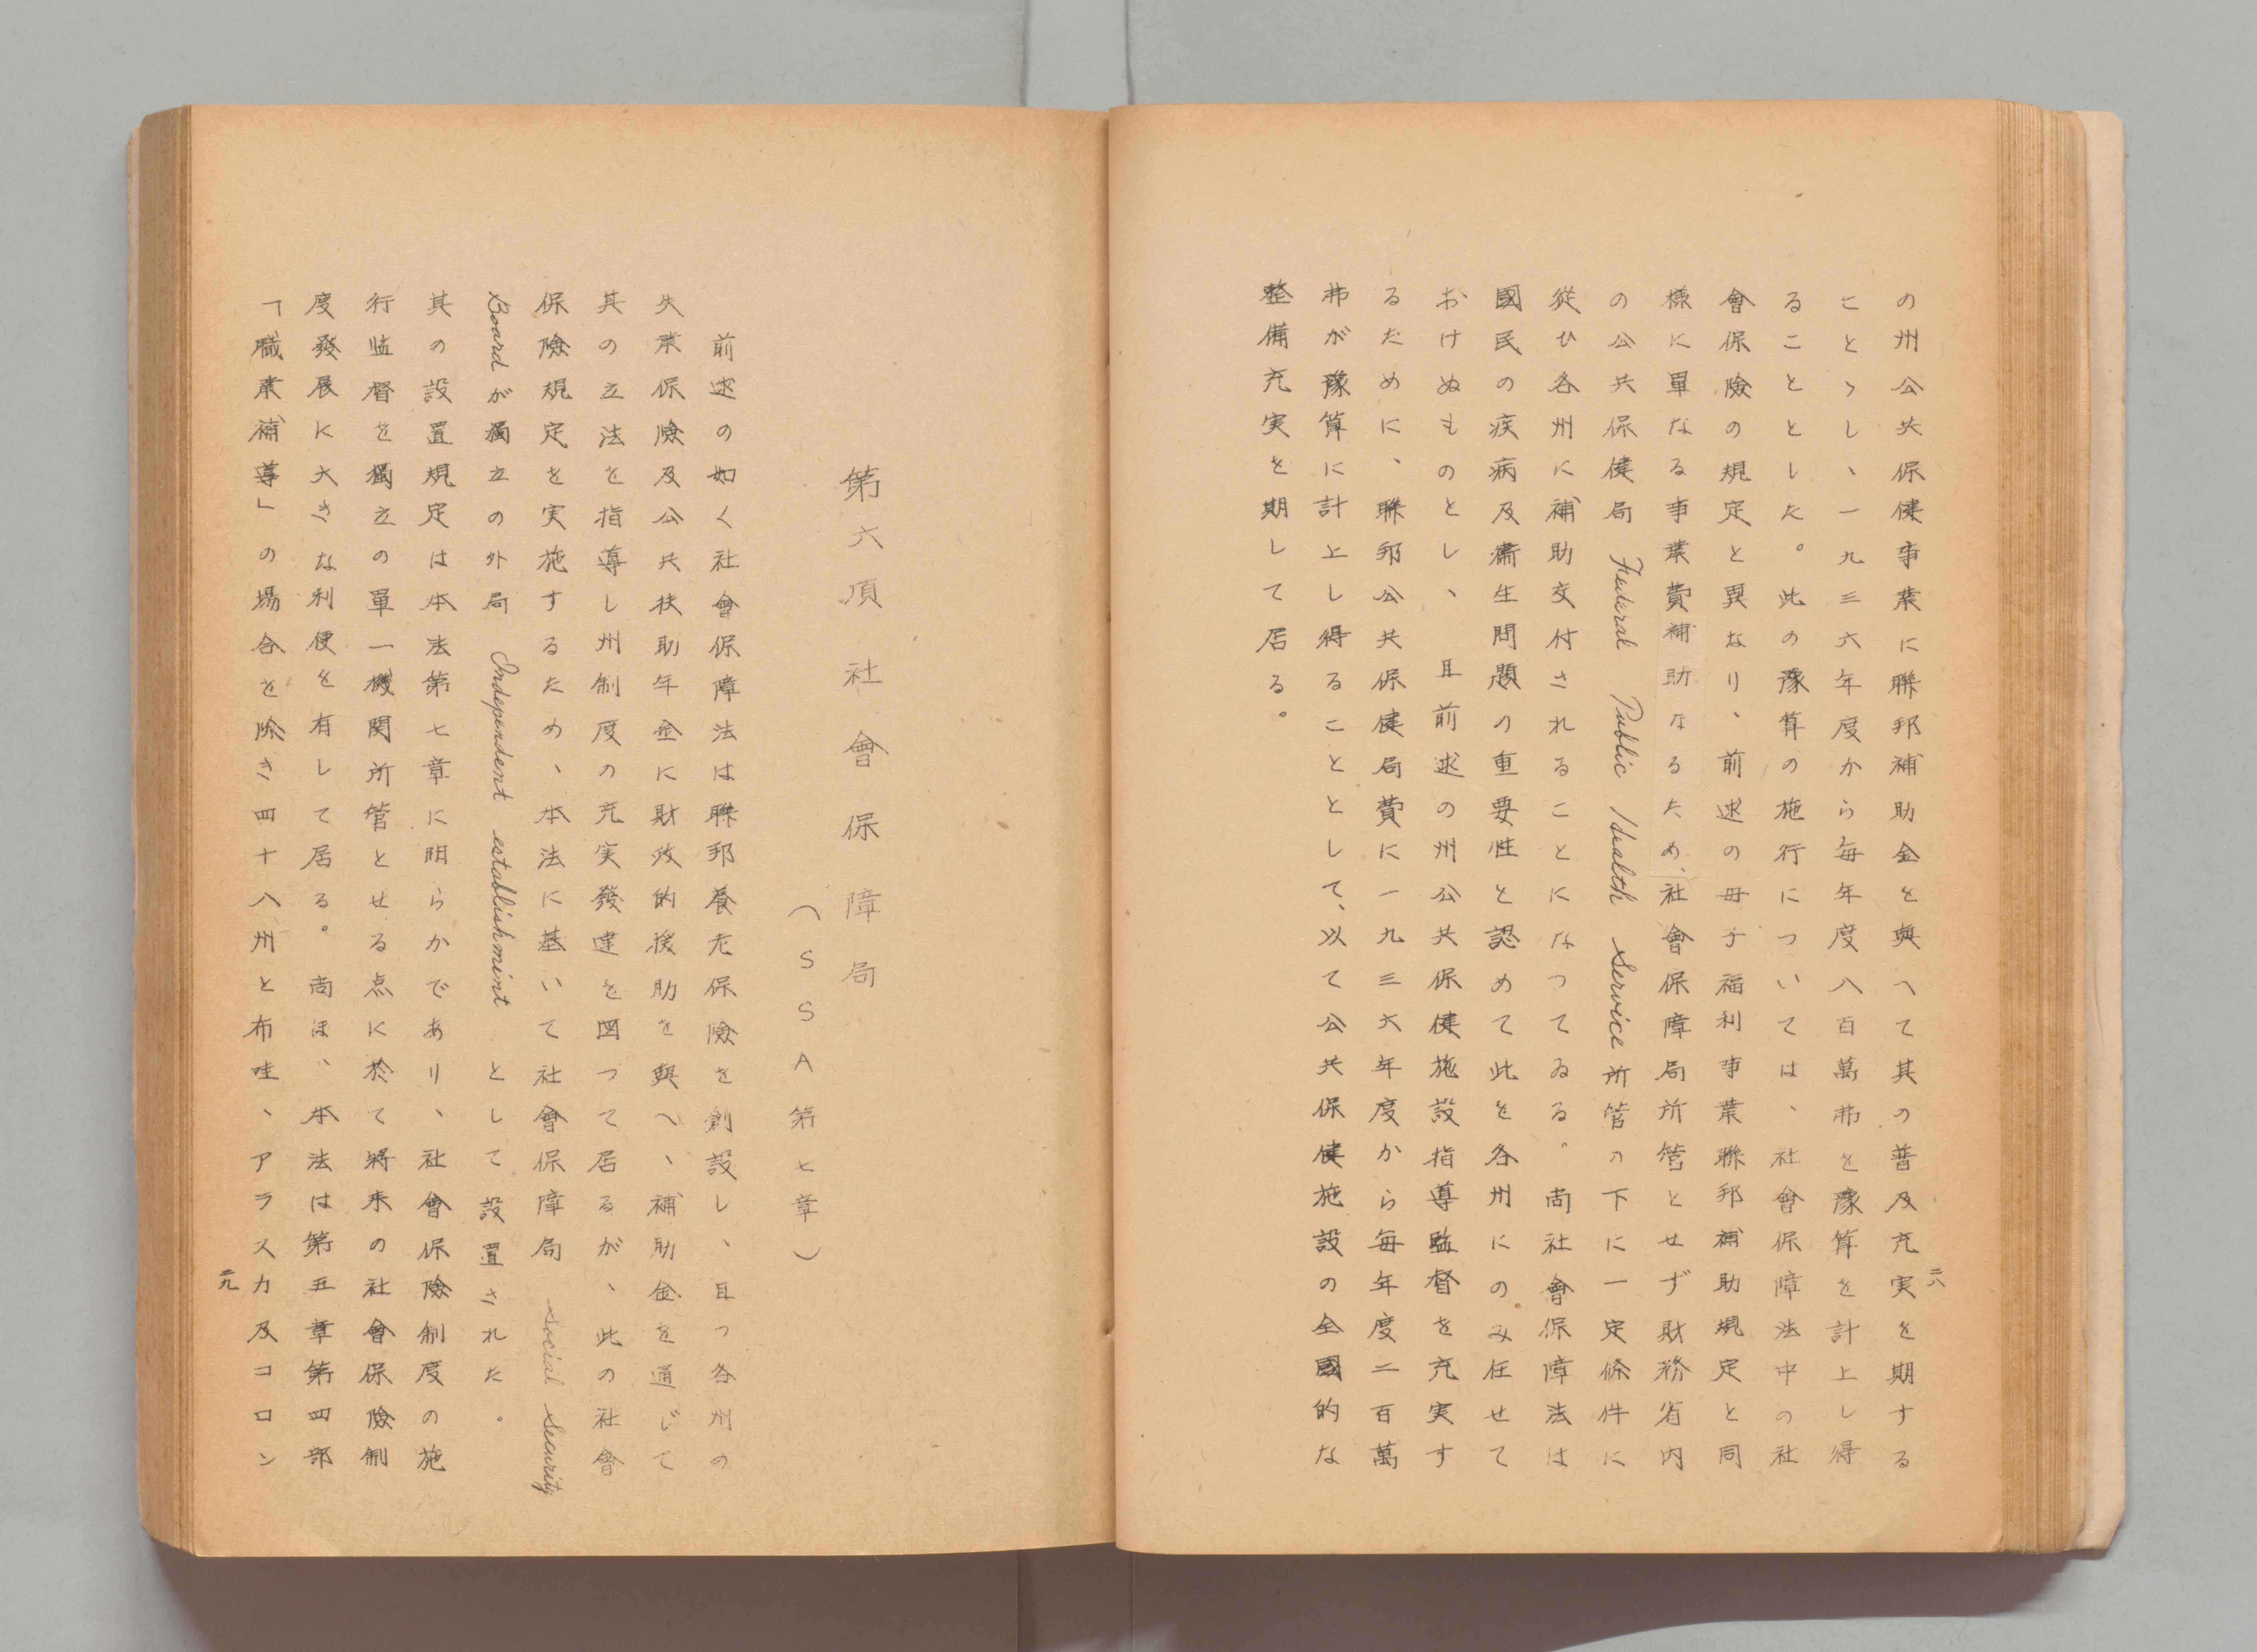 の州公共保健事業に聯邦補助金を與へて其の普及充実を期する
ことゝし、一九三六年度から毎年度八百萬弗を豫算を計上し得
ることとした。此の豫算の施行については、社會保障法中の社
會保險の規定と異なり、前述の母子福利事業聯邦補助規定と同
様に單なる事業費補助なるため、社會保障局所管とせず財務省内
の公共保健局 Federal Public Health Service 所管の下に一定條件に
從ひ各州に補助交付されることになつてゐる。尚社會保障法は
國民の疾病及衞生問題の重要性と認めて此を各州にのみ任せて
おけぬものとし、且前述の州公共保健施設指導監督を充実す
るために、聯邦公共保健局費に一九三六年度から毎年度二百萬
弗が豫算に計上し得ることとして、以て公共保健施設の全國的な
整備充実を期して居る。
二八
第六項 社會保障局
(SSA第七章)
前述の如く社會保障法は聯邦養老保險を創設し、且つ各州の
失業保險及公共扶助年金に財政的援助を與へ、補助金を通じて
其の立法を指導し州制度の充実發達を図つて居るが、此の社會
保險規定を実施するため、本法に基いて社會保障局 Social Security
Board が獨立の外局 Independent establishmint として設置された。
其の設置規定は本法第七章に明らかであり、社會保險制度の施
行監督を獨立の單一機関所管とせる点に於て將来の社會保險制
度發展に大きな利便を有して居る。尚ほ、本法は第五章第四部
「職業補導」の場合を除き四十八州と布哇、アラスカ及コロン
二九